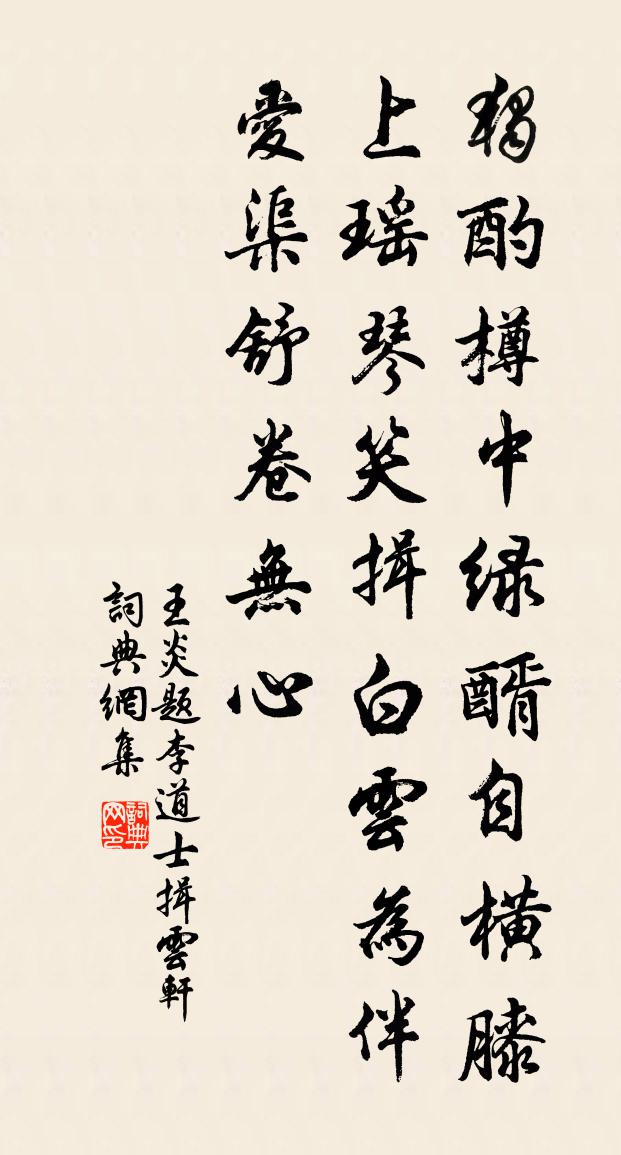 獨酌樽中綠醑自橫膝
上瑤琴笑揖白雲為伴
愛渠舒卷無心
王炎題李道士揖雲軒
詞典網集
詞典网印